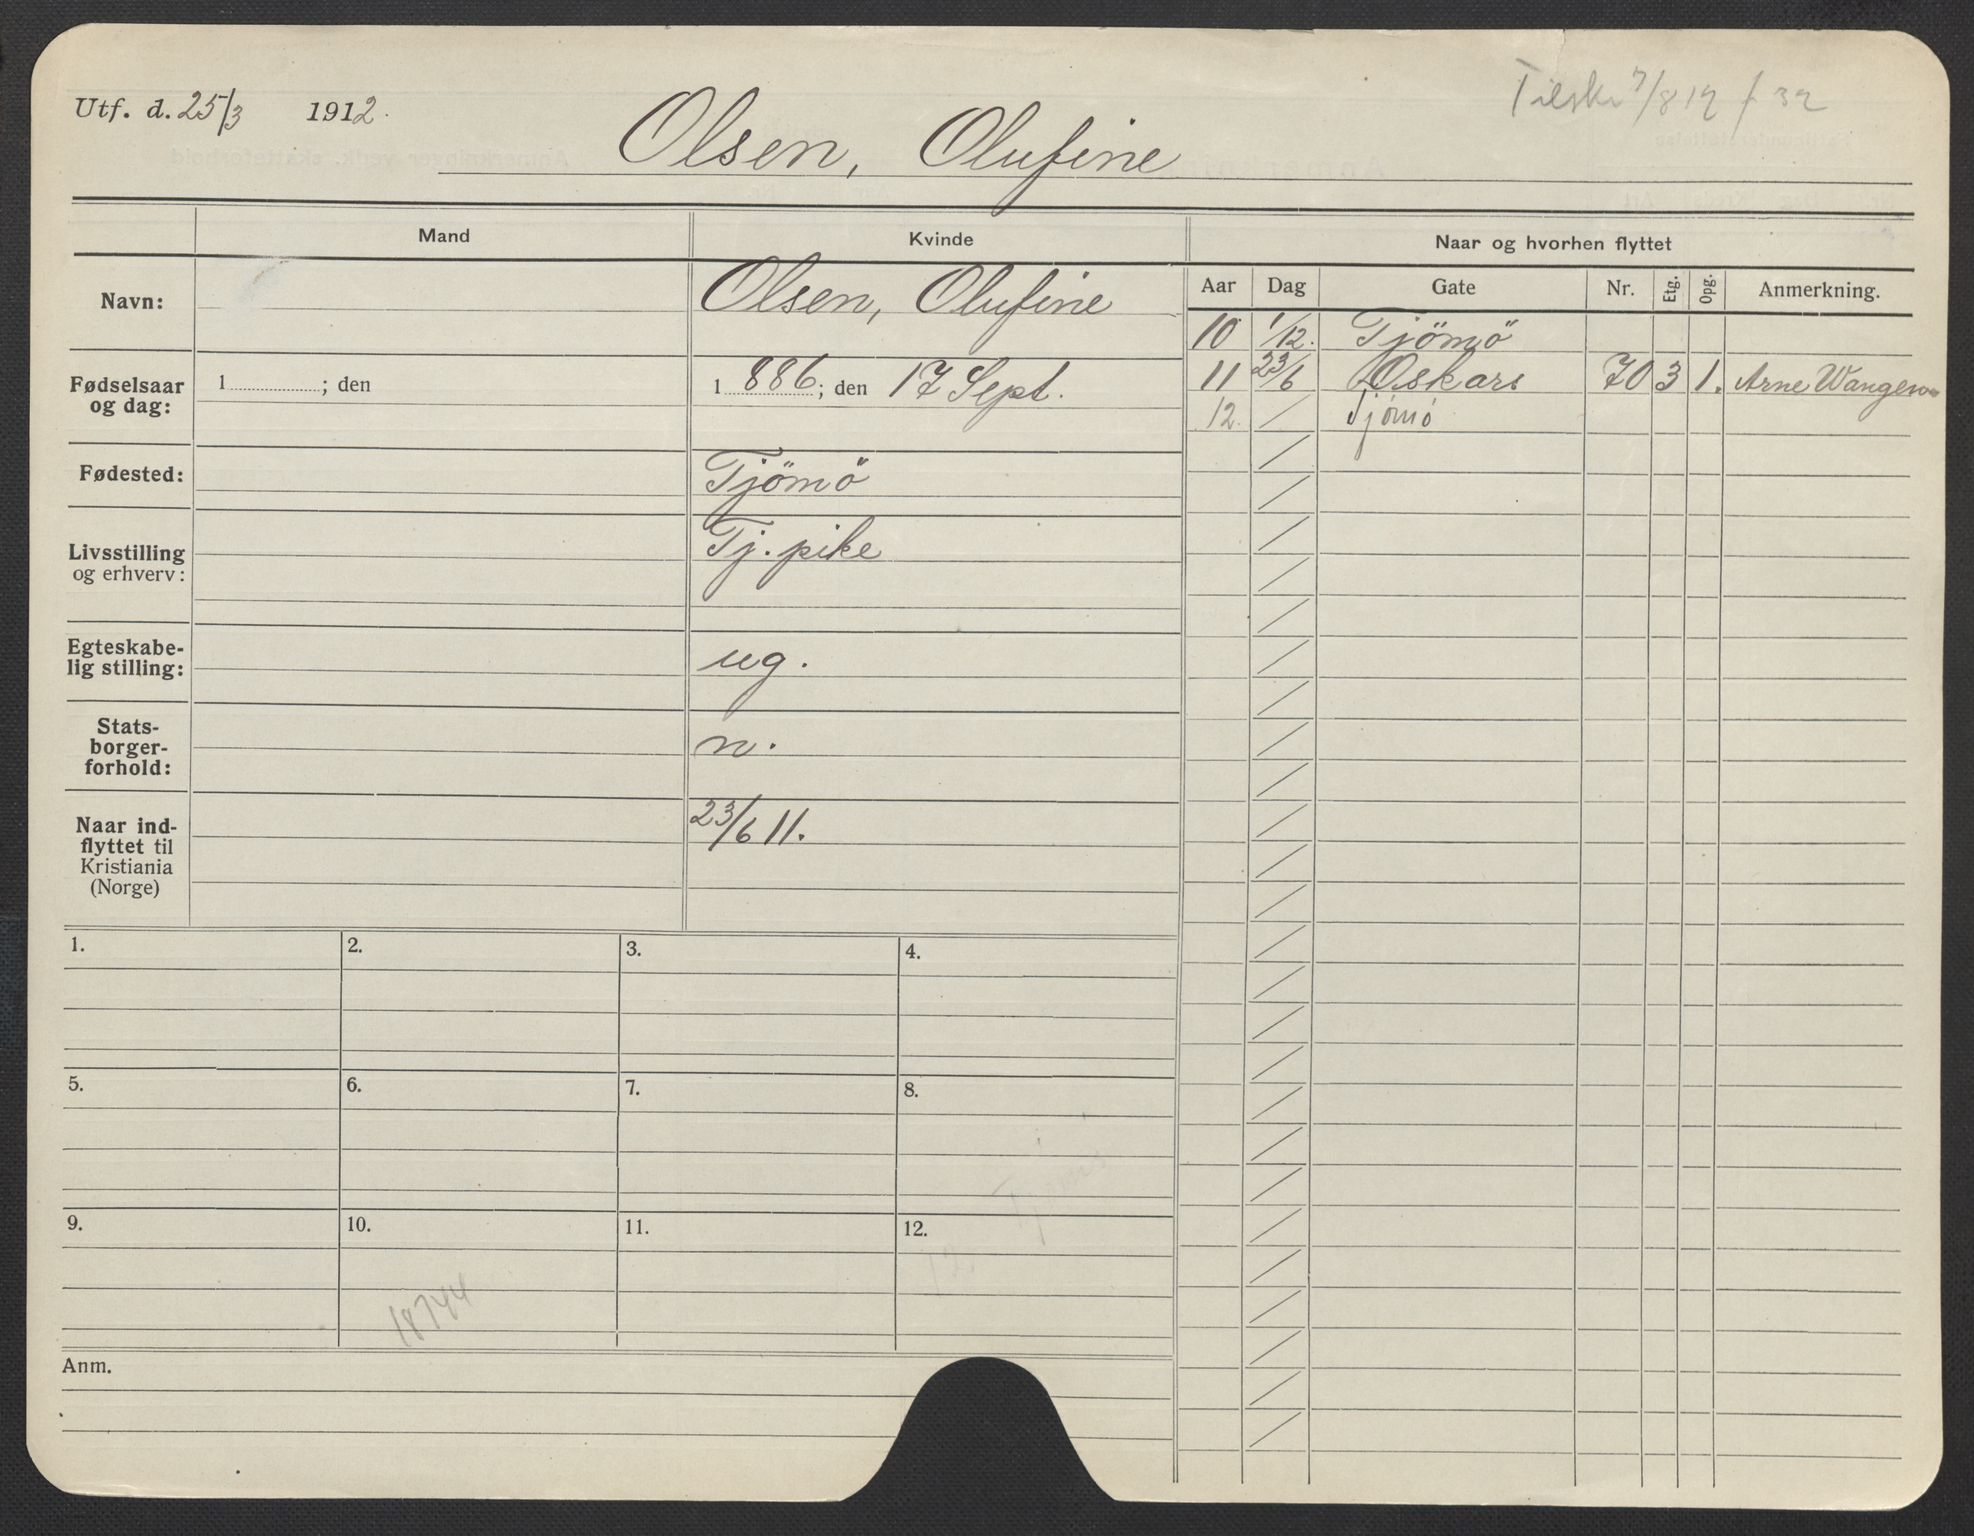 Utf. d. 25/3 1912.
Olsen, Olufine
7/8 12
Mand
Kvinde
Naar og hvorhen flyttet
Aar Dag Gate Nr. Etg. Opg. Anmerkning.
Navn: Olsen, Olufine
10 1/12. Tjömö
11 23/6 Oskars 70 3 1. Arne Wangen
12. Tjömö
Fødselsaar og dag: 1 ; den
1 886; den 17 Sept.
Fødested: Tjömö
Livsstilling og erhverv: Tj. pike
Egteskabe-
lig stilling: ug.
Stats-
borger-
forhold: n.
Naar ind-
flyttet til
Kristiania
(Norge)
23/6 11.
1. 2. 3. 4.
5. 6. 7. 8.
9. 10. 11. 12.
12 Tjømø
18744
Anm.